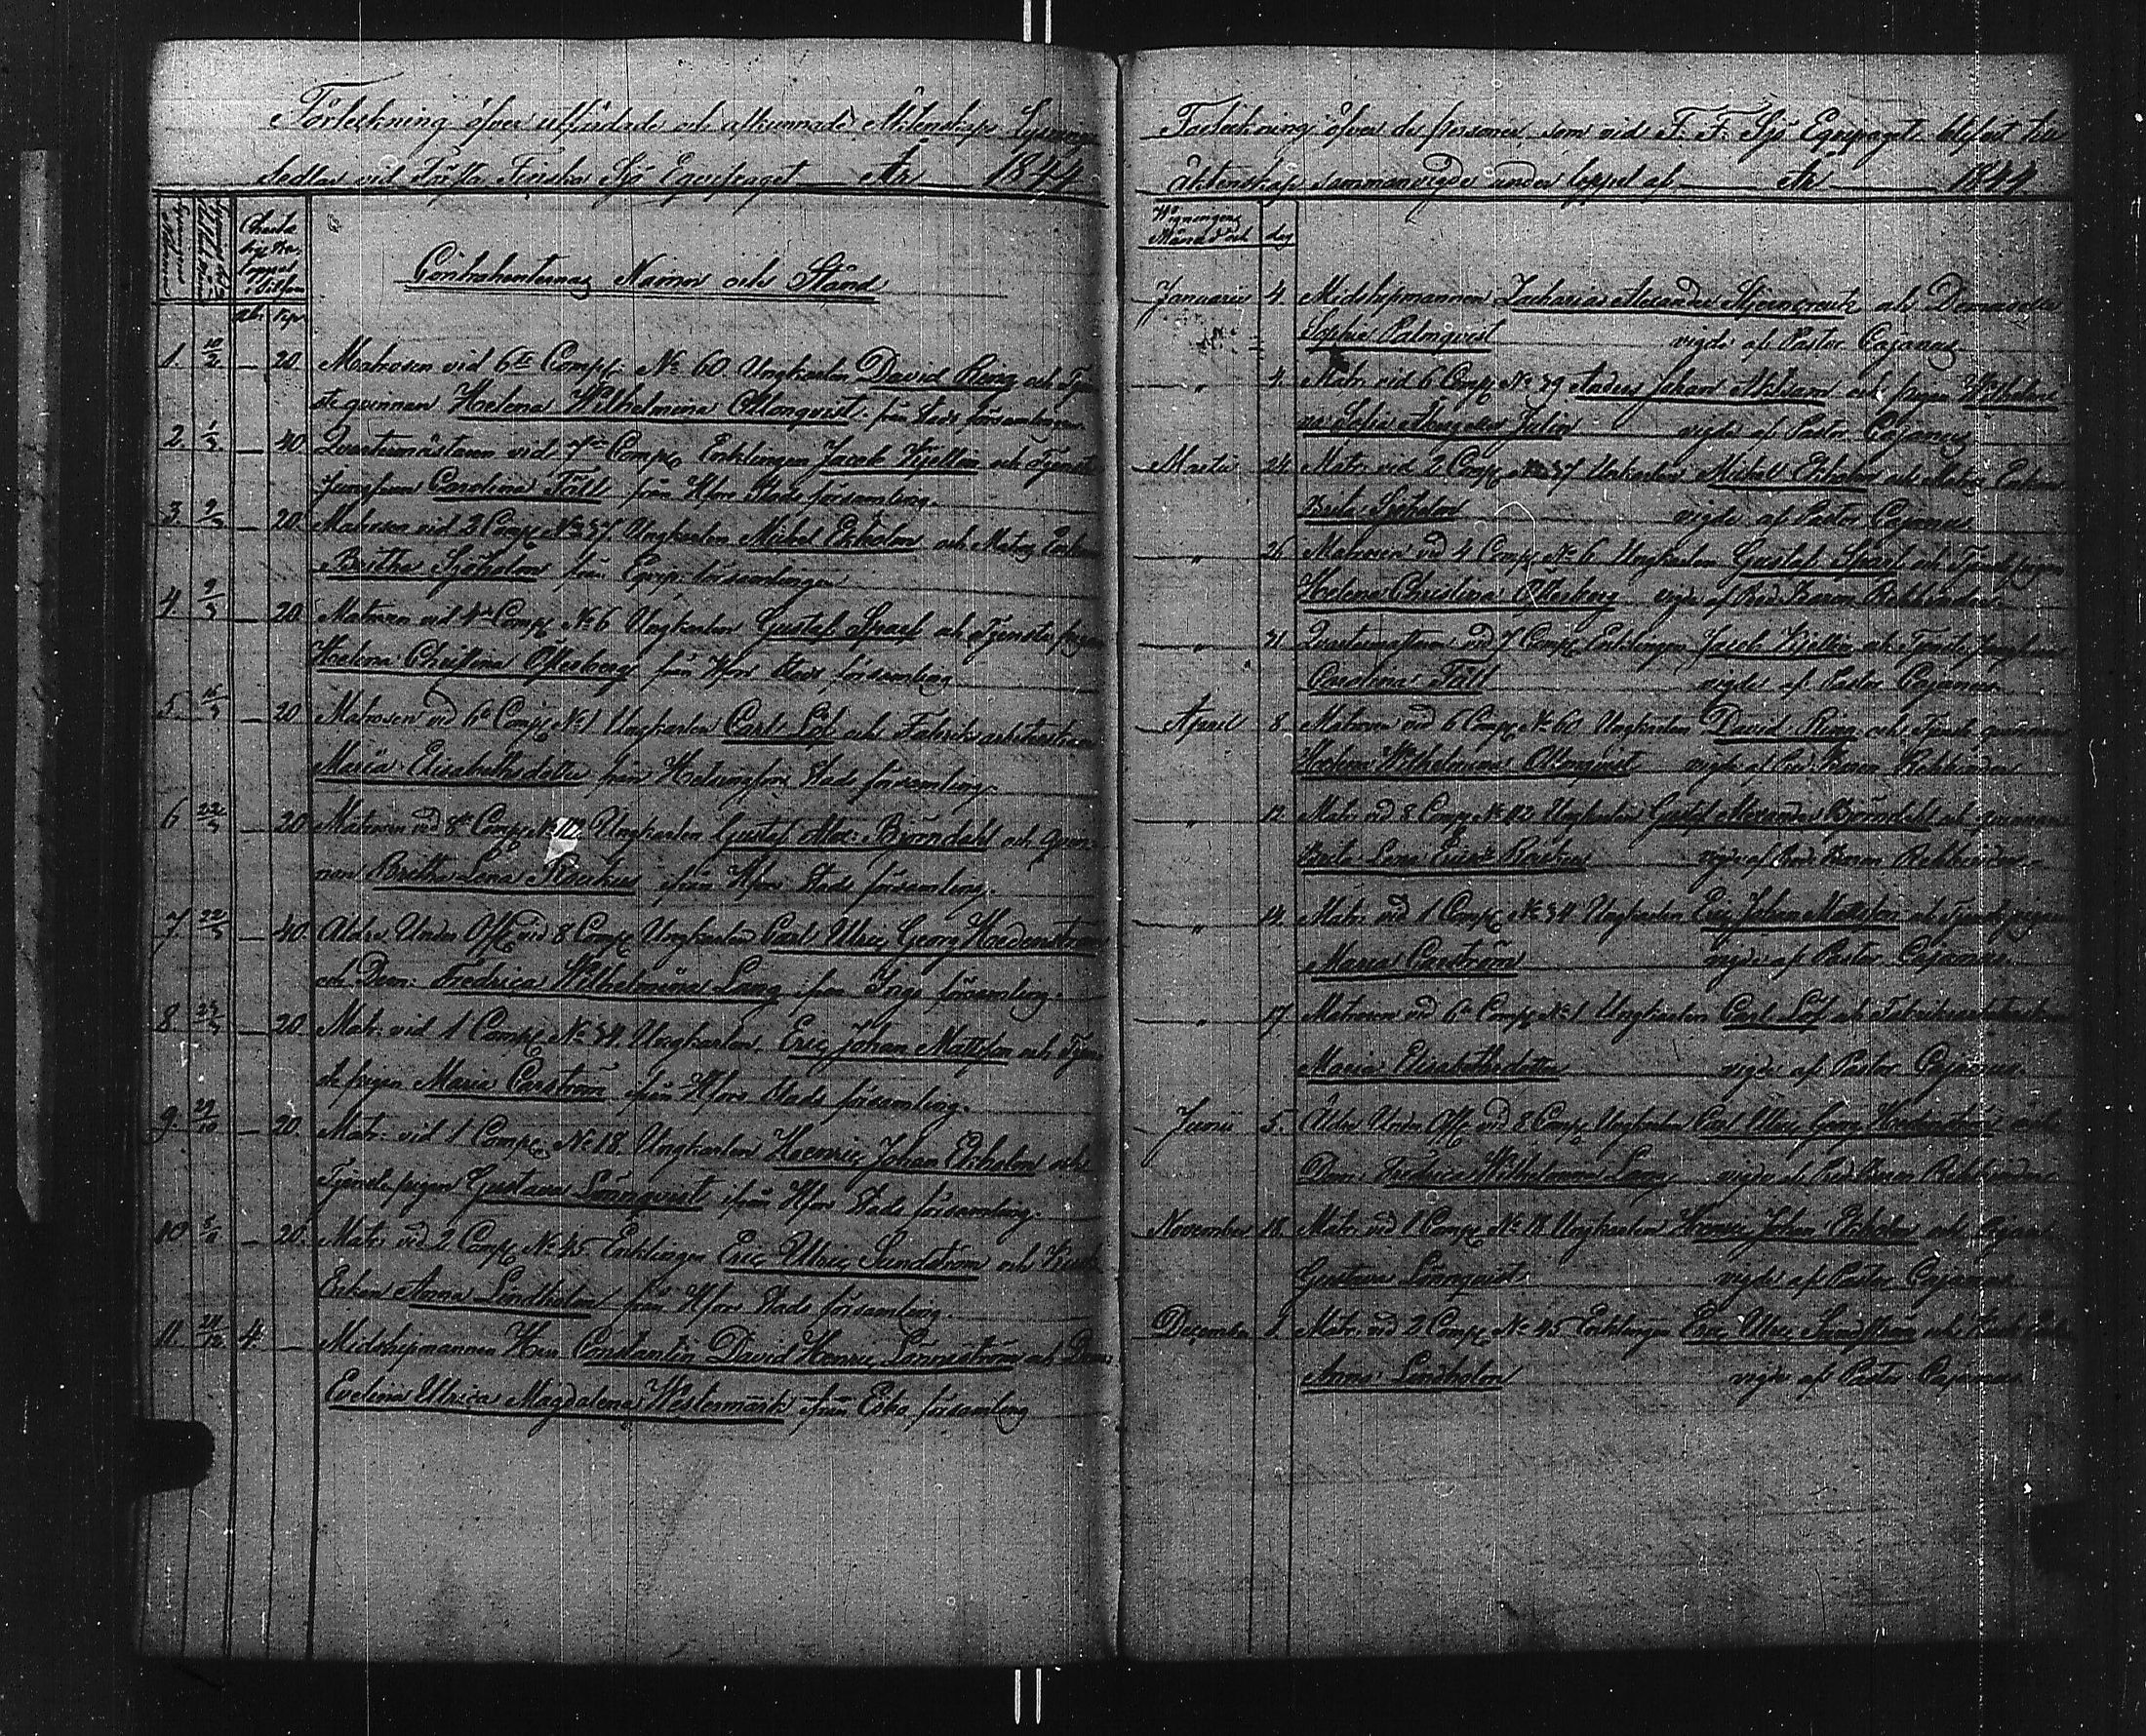 Förteckning öfver utfärdade och afkunnade Äktenskaps Lysnings
Sedlar vid Första Finska Sjö Equipaget År 1844
Contrahenternas Namn och Stånd
1. 10/2 — 20. Matrosen vid 6te Comp: No 60 Ungkarlen David Ring och Tjen
ste qvinnan Helena Wilhelmina Malmqvist från Stads församlingen
2. 1/3 — 40. Quartermästaren vid 7de Comp: Enklingen Jacob Kjellin och Tjenste
jungfrun Carolina Fält från Hfors Stads församling.
3. 9/3 — 20. Matrosen vid 2 Comp: No 37 Ungkarlen Michel Ekholm och Matros Enkan
Britha Sjöholm från Equip: församlingen
4. 9/3 — 20. Matrosen vid 4de Comp: No 6 Ungkarlen Gustaf Sparf och Tjenste pigan
Helena Christina Österberg från Hfors Stads församling.
5. 15/3 — 20 Matrosen vid 6te Comp: No 1 Ungkarlen Carl Löf och Fabriks arbeterskan
Maria Elisabethsdotter från Helsingfors Stads församling.
6 22/3 — 20 Matrosen vid 8de Comp: Ungkarlen Gustaf Alex: Björndahl och qvin-
nan Britha Lena från Hfors Stads församling.
7 22/3 — 40. Äldre Under Off: vid 8 Comp: Ungkarlen Carl Ulric Georg Hedenström
och Dem: Fredrica Wilhelmina Lang från Ingo församling.
8. 23/3 — 20. Matr. vid 1 Comp: No 34 Ungkarlen Eric Johan Mattsson och Tjen
ste pigan Maria Carström från Hfors Stads församling.
9. 29/10 — 20. Matr: vid 1 Comp: No 18. Ungkarlen Henric Johan Ekholm och
Tjenste pigan Gustava Lönnqvist från Hfors Stads församling.
10. — 20. Matr. vid 2 Comp: No 45 Enklingen Eric Ulric Sundström och
Enkan Anna Lindholm från Hfors Stads församling.
11. 4. — Midshipmannen Herr Constantin David Henric Lönnström och Dem:
Evelina Ulrica Magdalena Westermark från Esbo församling
Förteckning öfver de personer, som vid F. F. Sjö Equipaget blifvit till
äktenskap sammanvigde under loppet af År 1844
Wigningens Månad och dag
Januarii 4. Midshipmannen Zacharias Alexander Stjerncreutz och Demoiselle
Sophie Palmqvist vigde af Pastor Cajanus
" 4. Matr. vid 6 Comp: No 39 Anders Johan och pigan Wilhelmi
na Sofia vigde af Pastor Cajanus
Martii 24. Matr. vid 2 Comp: No 37 Unkarlen Michel Ekholm och Matros Enkan
Brita Sjöholm vigde af Pastor Cajanus
" 26 Matrosen vid 4 Comp: No 6 Ungkarlen Gustaf Sparf och Tjenste pigan
Helena Christina Österberg vigde af Pred: Baron Rehbinder
" 31. Quartermästaren vid 7 Comp: Enklingen Jacob Kjellin och Tjenste Jungfrun
Carolina Fält vigde af Pastor Cajanus
April 8. Matrosen vid 6 Comp: No 60 Ungkarlen David Ring och Tjenste qvinnan
Helena Wilhelmina Malmqvist vigde af Pred: Baron Rehbinder
" 12. Matr. vid 8 Comp: No 42 Ungkarlen Gustaf Alexander Björndahl och qvinnan
Brita Lena vigde af Pred: Baron Rehbinder
" 14. Matr. vid 1 Comp: No 34 Ungkarlen Eric Johan Mattsson och Tjenste pigan
Maria Carström vigde af Pastor Cajanus.
" 17 Matrosen vid 6te Comp: No 1 Ungkarlen Carl Löf och Fabriksarbeterskan
Maria Elisabethsdotter vigde af Pastor Cajanus.
Junii 5. Äldre Under Off: vid 8 Comp: Ungkarlen Carl Ulric Georg Hedenström och
Dem: Fredrica Wilhelmina Lang vigde af Pred: Baron Rehbinder
November 18. Matr. vid 1 Comp: No 18 Ungkarlen Henric Johan Ekholm och Pigan
Gustava Lönnqvist vigde af Pastor Cajanus
December 8. Matr. vid 2 Comp: No 45 Enklingen Eric Ulric Sundström och
Anna Lindholm vigde af Pastor Cajanus